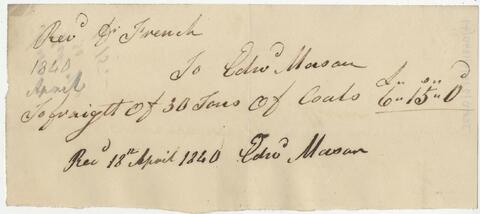 Revd Dr French
1840
April
To Edwd Mason
To freight of 30 Tons of Coals £6" 15s" 0d
Recd 18th April 1840 Edwd Mason